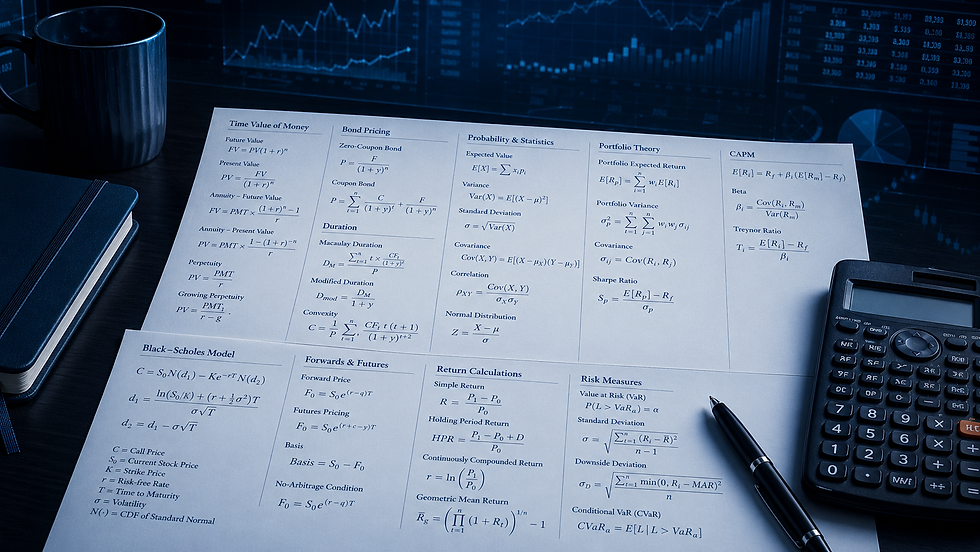 Time Value of Money
Future Value
FV = PV(1 + r)^n
Present Value
PV = FV / (1 + r)^n
Annuity – Future Value
FV = PMT × ((1 + r)^n − 1) / r
Annuity – Present Value
PV = PMT × (1 − (1 + r)^−n) / r
Perpetuity
PV = PMT / r
Growing Perpetuity
PV = PMT_1 / (r − g) .
Bond Pricing
Zero-Coupon Bond
P = F / (1 + y)^n
Coupon Bond
P = ∑_{t=1}^{n} C / (1 + y)^t + F / (1 + y)^n
Duration
Macaulay Duration
D_M = (∑_{t=1}^{n} t × CF_t / (1+y)^t) / P
Modified Duration
D_mod = D_M / (1 + y)
Convexity
C = (1 / P) ∑_{t=1}^{n} CF_t t (t + 1) / (1 + y)^{t+2}
Probability & Statistics
Expected Value
E[X] = ∑ x_i p_i
Variance
Var(X) = E[(X − μ)²]
Standard Deviation
σ = √Var(X)
Covariance
Cov(X,Y) = E[(X − μ_X)(Y − μ_Y)]
Correlation
ρ_XY = Cov(X, Y) / (σ_X σ_Y)
Normal Distribution
Z = (X − μ) / σ
Portfolio Theory
Portfolio Expected Return
E[R_p] = ∑_{i=1}^{n} w_i E[R_i]
Portfolio Variance
σ_p² = ∑_{i=1}^{n} ∑_{j=1}^{n} w_i w_j σ_ij
Covariance
σ_ij = Cov(R_i, R_j)
Sharpe Ratio
S_p = (E[R_p] − R_f) / σ_p
CAPM
E[R_i] = R_f + β_i (E[R_m] − R_f)
Beta
β_i = Cov(R_i, R_m) / Var(R_m)
Treynor Ratio
T_i = (E[R_i] − R_f) / β_i
Black–Scholes Model
C = S_0 N(d_1) − Ke^{−rT} N(d_2)
d_1 = (ln(S_0/K) + (r + ½σ²)T) / (σ√T)
d_2 = d_1 − σ√T
C = Call Price
S_0 = Current Stock Price
K = Strike Price
r = Risk-free Rate
T = Time to Maturity
σ = Volatility
N(·) = CDF of Standard Normal
Forwards & Futures
Forward Price
F_0 = S_0 e^{(r−q)T}
Futures Pricing
F_0 = S_0 e^{(r+c−y)T}
Basis
Basis = S_0 − F_0
No-Arbitrage Condition
F_0 = S_0 e^{(r−q)T}
Return Calculations
Simple Return
R = (P_1 − P_0) / P_0
Holding Period Return
HPR = (P_1 − P_0 + D) / P_0
Continuously Compounded Return
r = ln(P_1 / P_0)
Geometric Mean Return
R̄_g = (∏_{t=1}^{n} (1 + R_t))^{1/n} − 1
Risk Measures
Value at Risk (VaR)
P(L > VaR_α) = α
Standard Deviation
σ = √(∑_{t=1}^{n} (R_i − R)² / (n − 1))
Downside Deviation
σ_D = √(∑_{t=1}^{n} min(0, R_i − MAR)² / n)
Conditional VaR (CVaR)
CVaR_α = E[L | L > VaR_α]
7 8 9
4 5 6 ×
1 2 3 +
0